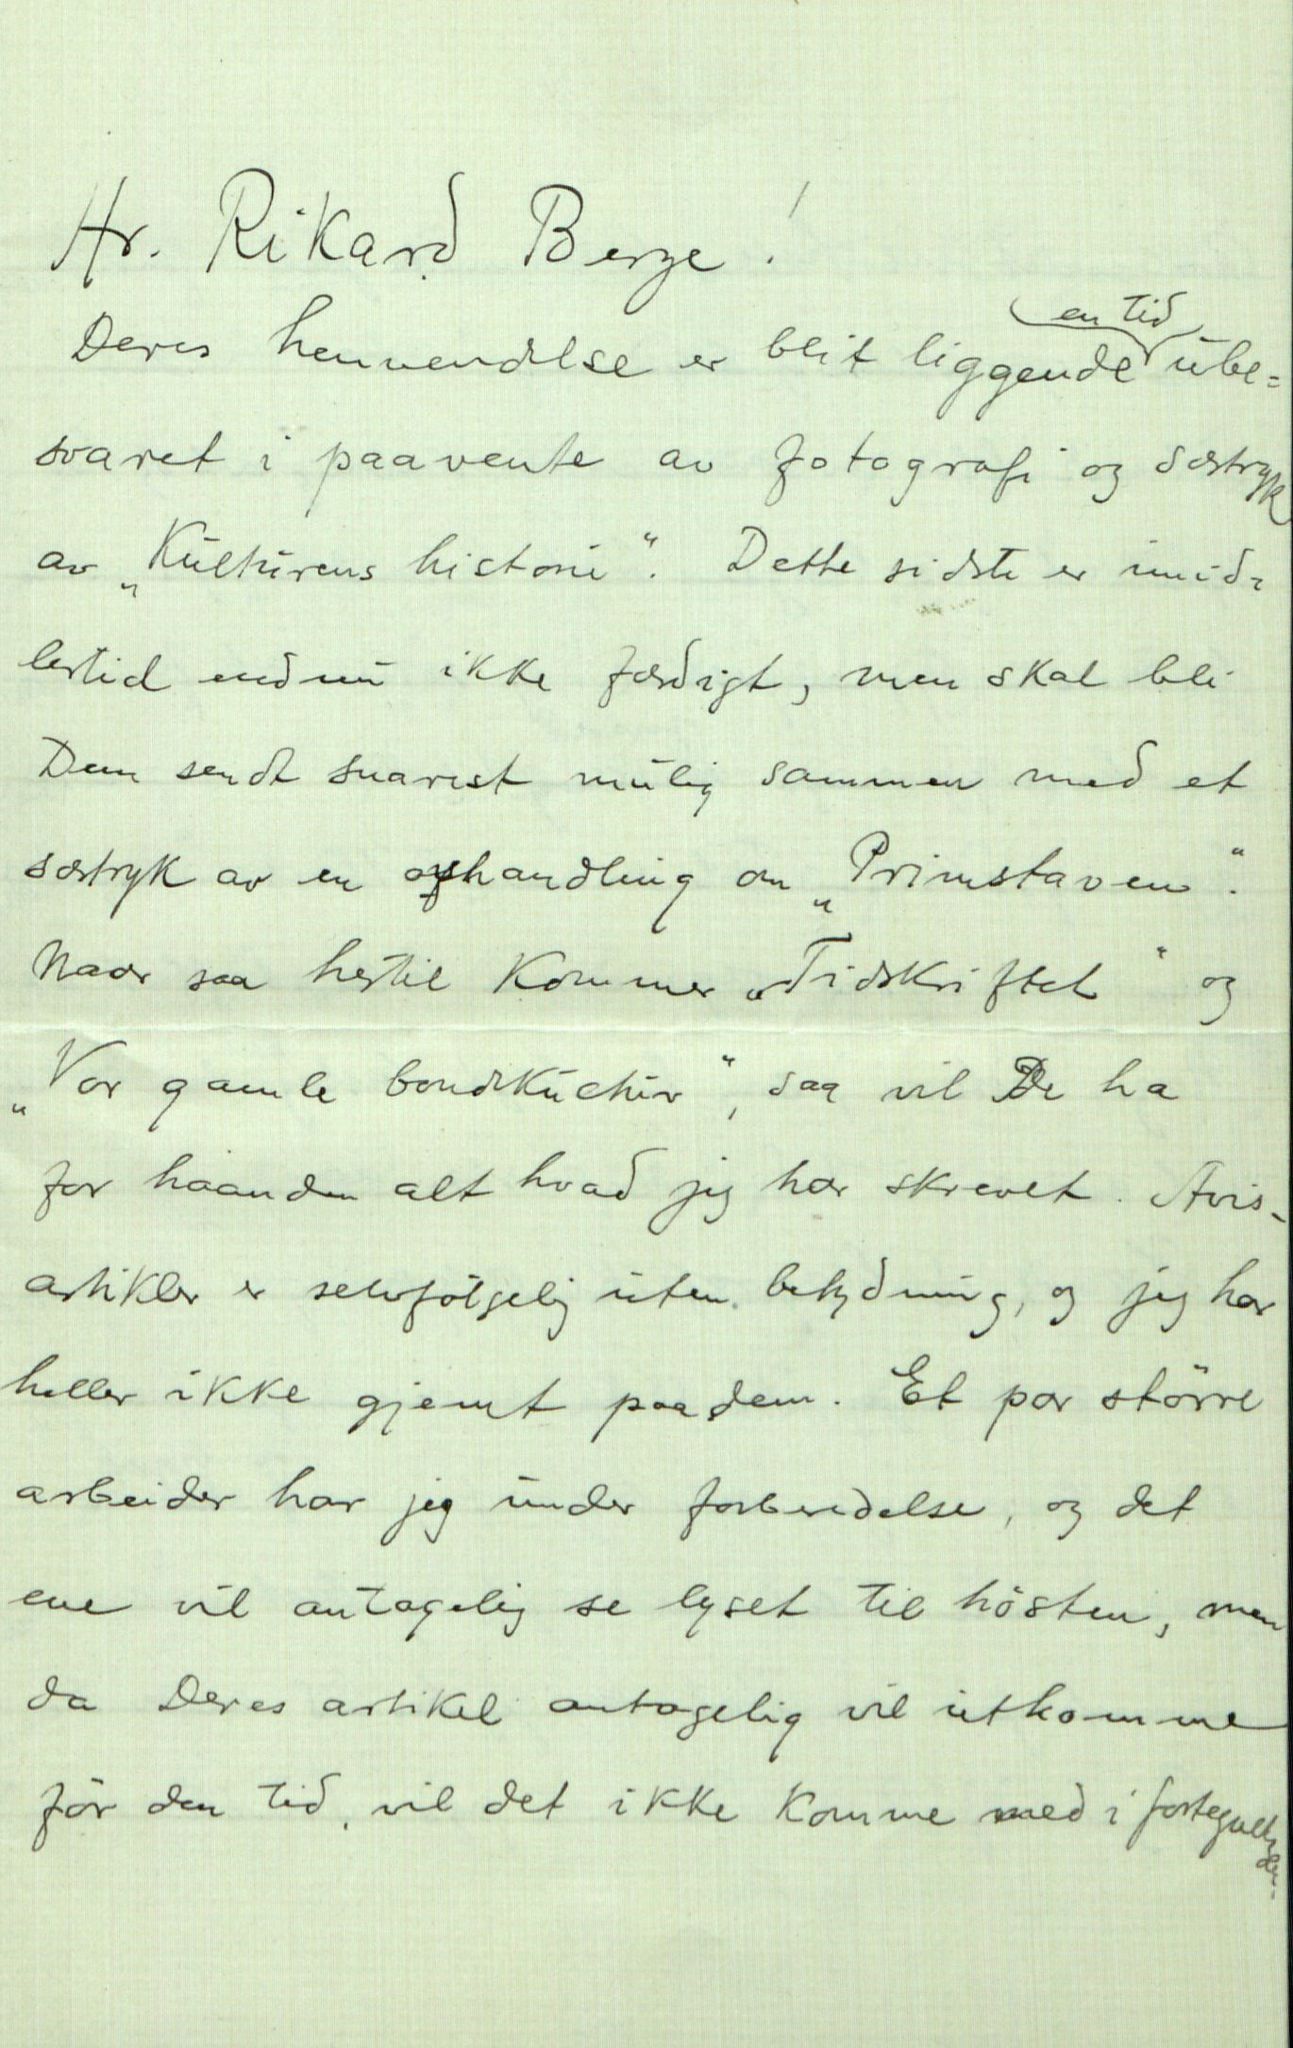 Hr. Rikard Berge!
Deres henvendelse er blit liggende en tid ube=
svaret i paavente av fotografi og særtryk
av „Kulturens historie“. Dette sidste er imid=
lertid endnu ikke færdigt, men skal bli
Dem sendt snarest mulig sammen med et
særtryk av en avhandling om „Primstaven“.
Naar saa hertil kommer „Tidskriftet“ og
„Vor gamle bondekultur“, saa vil De ha
for haanden alt hvad jeg har skrevet. Avis-
artikler er selvfølgelig uten betydning, og jeg har
heller ikke gjemt paa dem. Et par större
arbeider har jeg under forberedelse, og det
ene vil antagelig se lyset til hösten, men
da Deres artikel antagelig vil utkomme
för den tid, vil det ikke komme med i fortegnelsen.